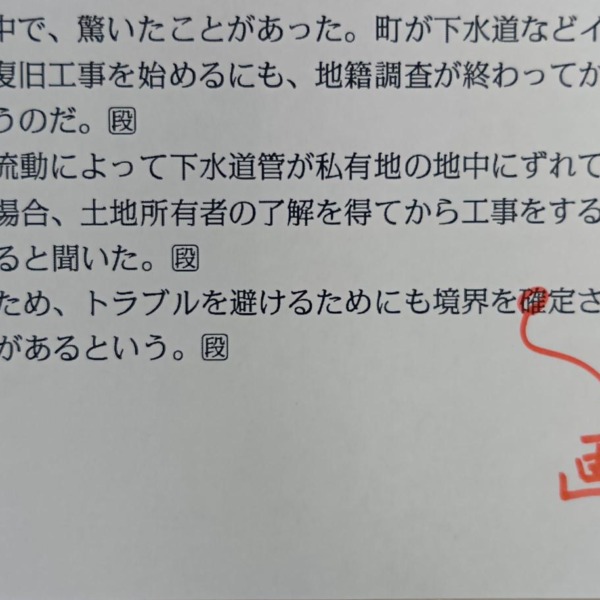 中で、驚いたことがあった。町が下水道などイ
復旧工事を始めるにも、地籍調査が終わってか
うのだ。段
流動によって下水道管が私有地の地中にずれて
場合、土地所有者の了解を得てから工事をする
ると聞いた。段
ため、トラブルを避けるためにも境界を確定さ
があるという。段
画